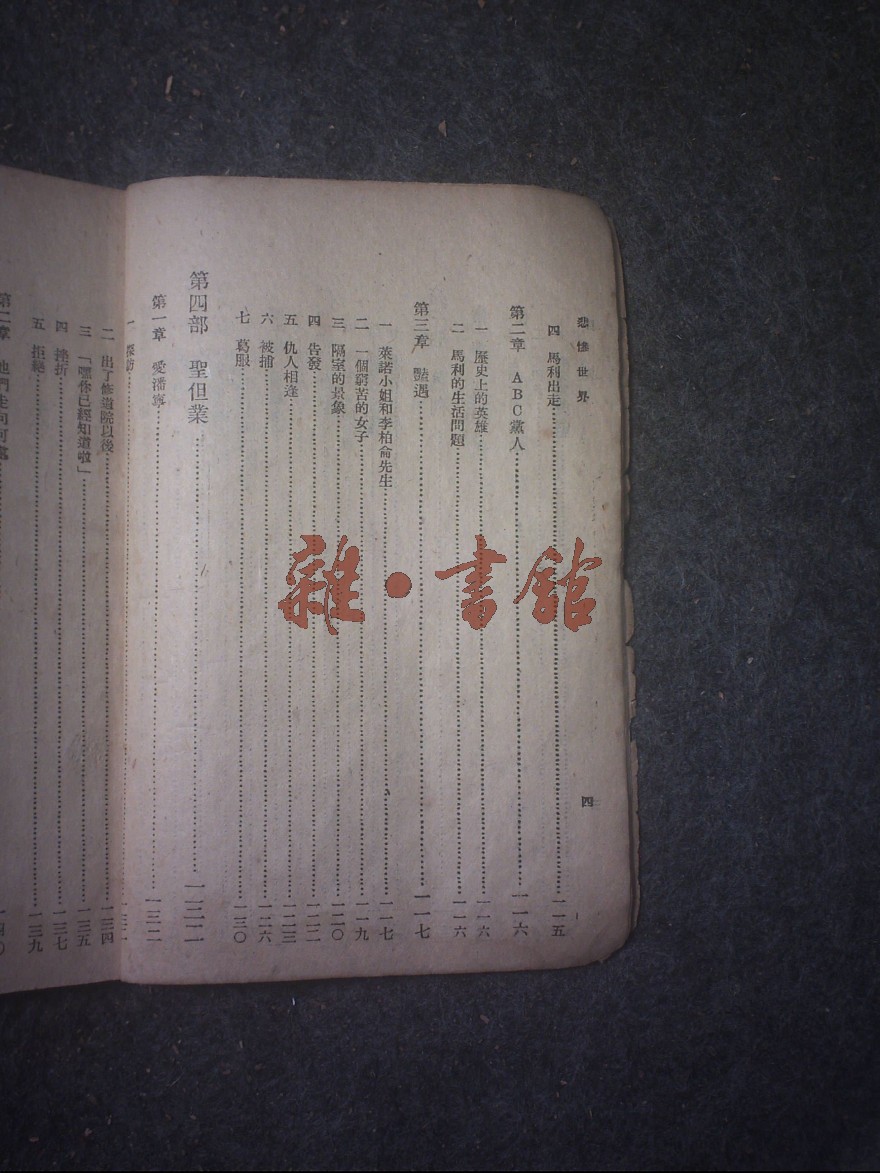 悲慘世界
四
四 馬利出走 一一五
第二章 ABC黨人 一一六
一 歷史上的英雄 一一六
二 馬利的生活問題 一一六
第三章 豔遇 一一七
一 萊諾小姐和李柏侖先生 一一七
二 一個窮苦的女子 一一九
三 隔室的景象 一二〇
四 告發 一二二
五 仇人相逢 一二三
六 被捕 一二六
七 葛服 一三〇
第四部 聖但業 一三二
第一章 愛潘寧 一三二
一 探訪 一三二
二 出了修道院以後 一三四
三 「嘿你已經知道啦」 一三五
四 挫折 一三七
五 拒絕 一三九
第二章 他們走向何處 一四〇
雜·書館